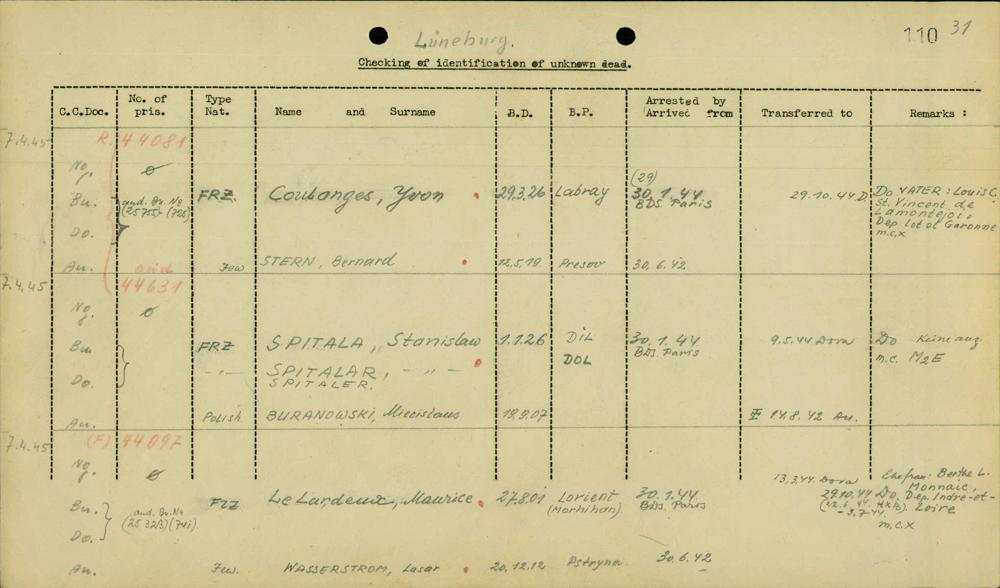 Lüneburg.
110 31
Checking of identification of unknown dead.
C.C.Doc. No. of pris. Type Nat. Name and Surname B.D. B.P. Arrested by Arrived from Transferred to Remarks :
7.4.45 R. 44081
Ng. ø (29)
Bu. and. Bu. No (25755) FRZ. Coulanges, Yvon 29.3.26 Labray 30.1.44 BDS. Paris 29.10.44 D. Do VATER: Louis C.
St. Vincent de
Do. Lamontejoie
Dep. Lot et Garonne
m.c.x
Au. and Jew STERN, Bernard 12.5.19 Presov 30.6.42
7.4.45 44631
Ng. ø
Bu. FRZ SPITALA, Stanislaw 1.1.26 DiL 30.1.44 BDS. Paris 9.5.44 Dora Do Keine ang
DOL m.c. M2E
Do. -"- SPITALAR, -"-
SPITALER.
Au. Polish BURANOWSKI, Miecislaus 19.9.07 14.8.42 Au.
7.4.45 (F) 44097
Ng. ø 13.3.44 Dora Ehefrau: Berthe L.
Bu. and. Bu. No Le Lardeux, Maurice 27.8.01 Lorient 30.1.44 29.10.44 Do. Monnaie,
(Morbihan) BDS. Paris Dep. Indre-et-
Do. -3.7.44 Loire
m.c.x
Au. Jew. WASSERSTROM, Lasar 20.12.12 30.6.42